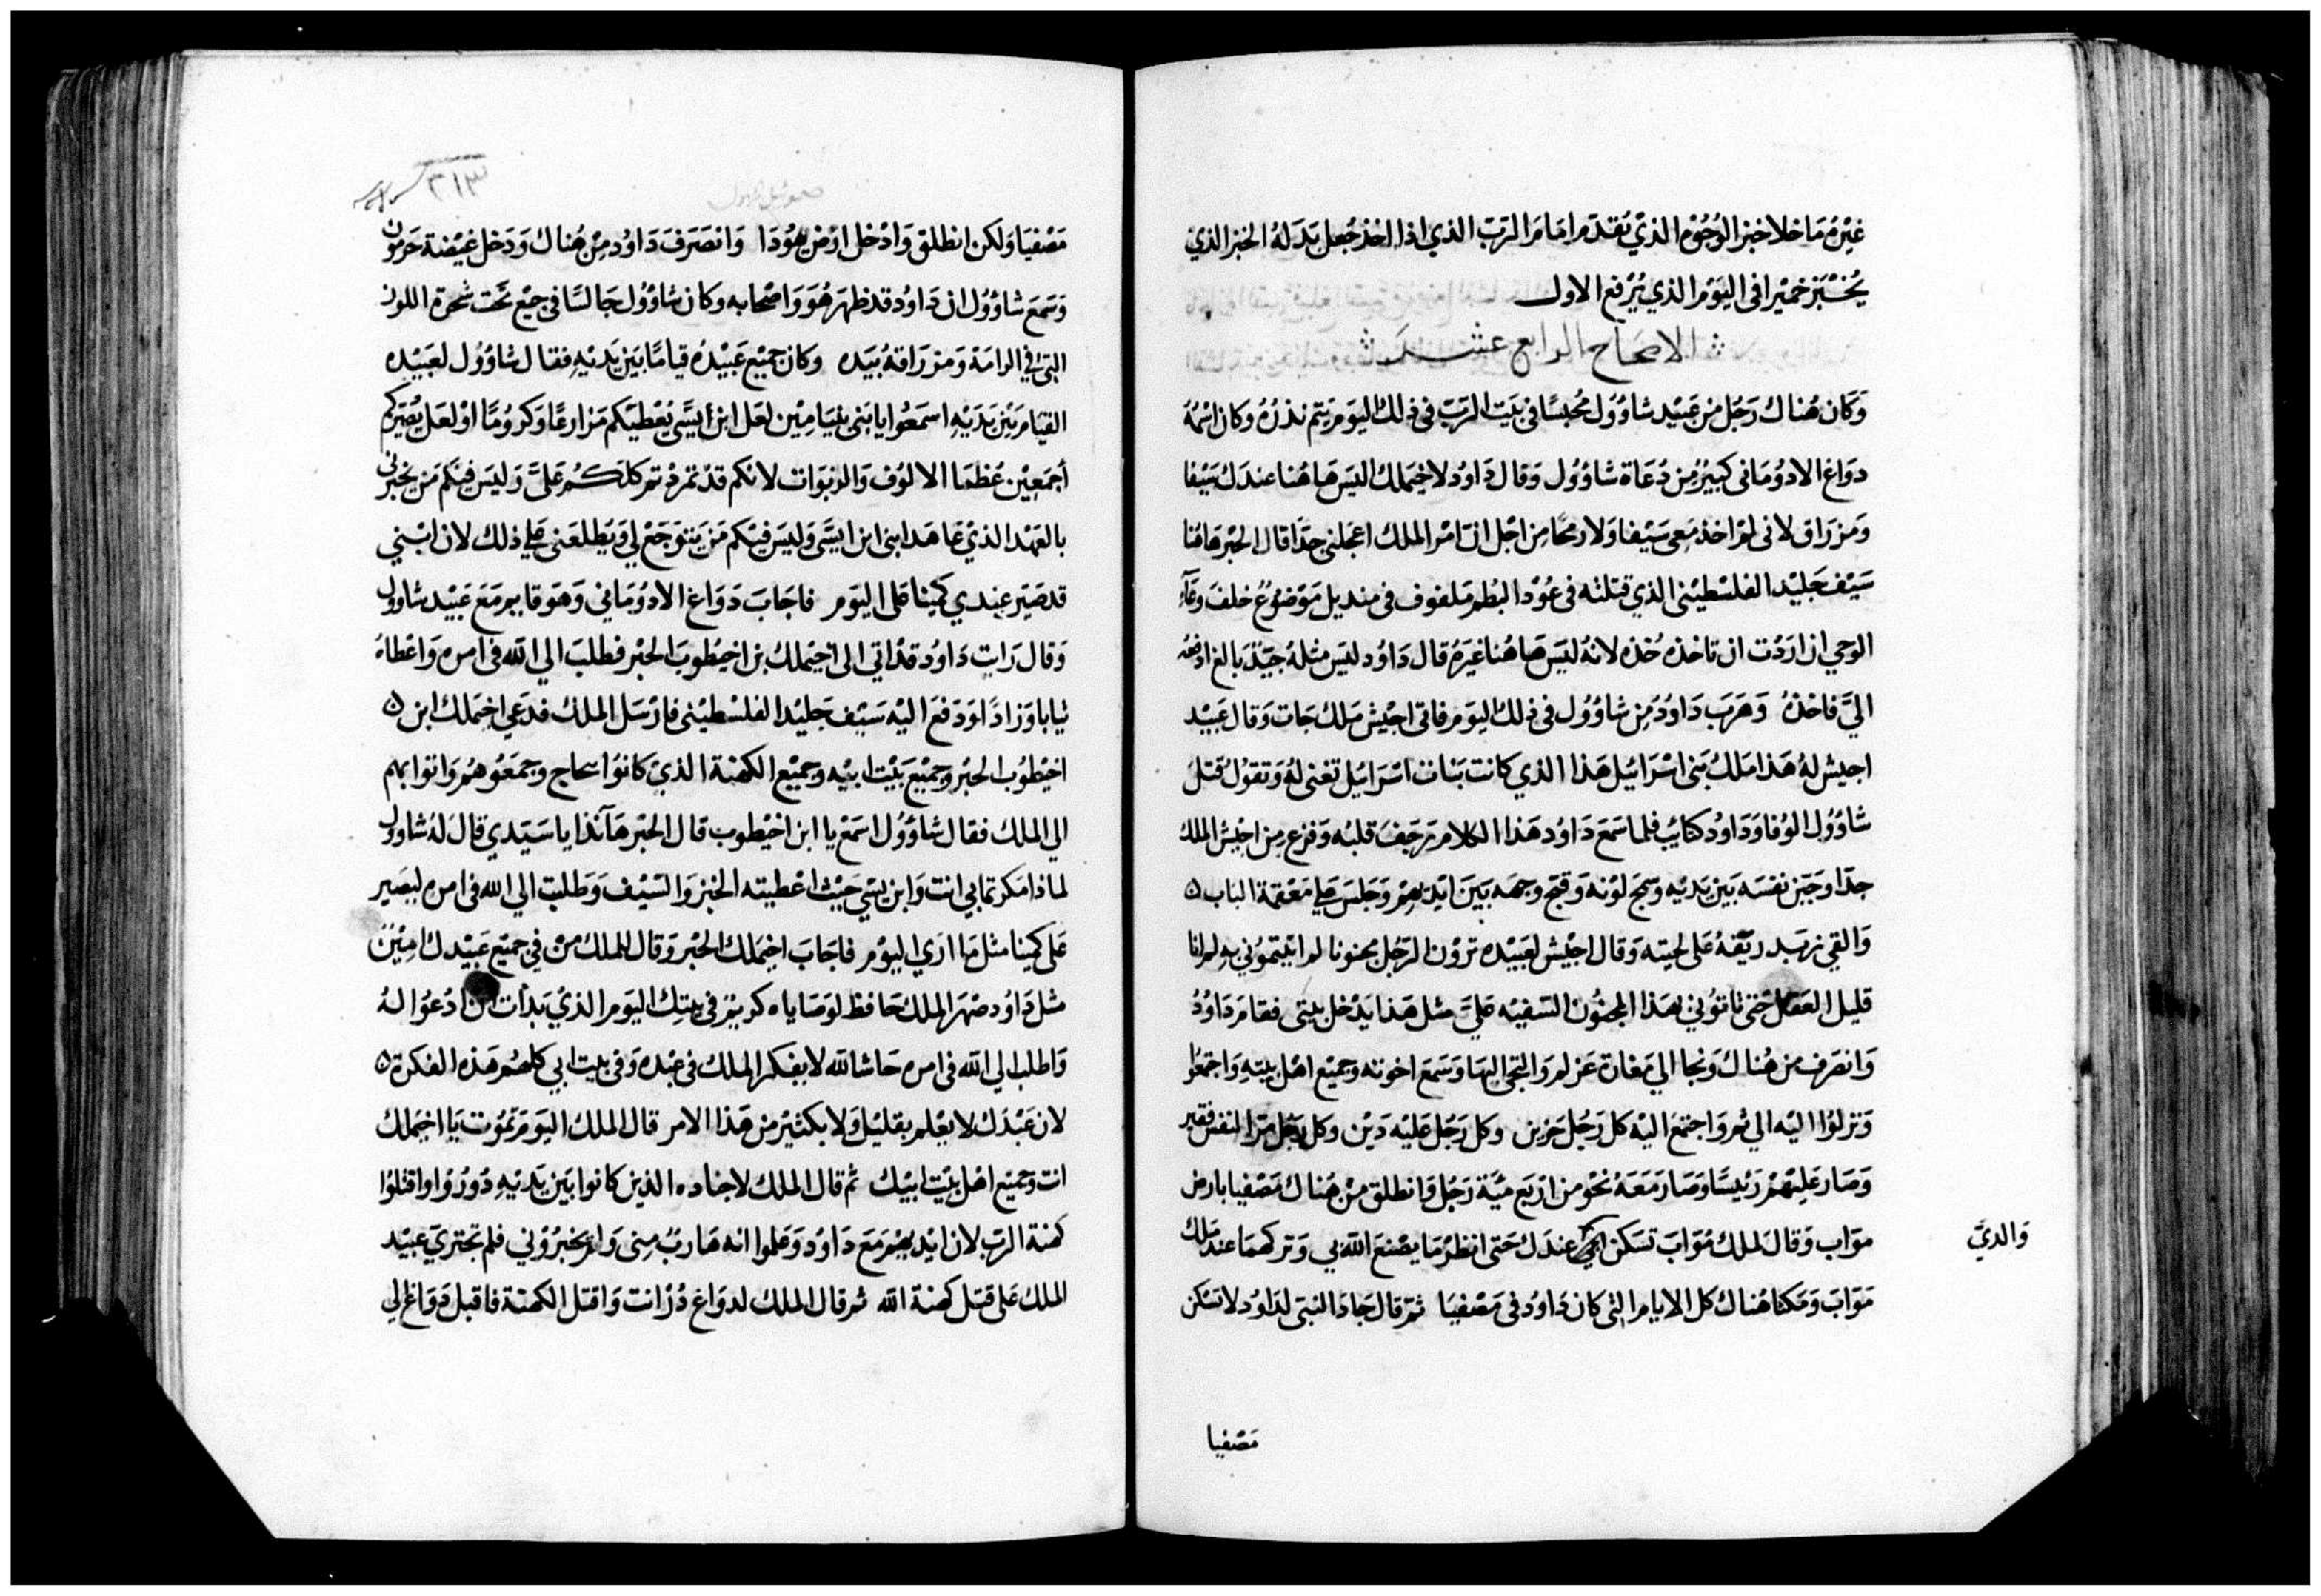 غيره ما خلا خبز الوجوه الذي يقدم امام الرب الذي اذا اخذ جعل بدله الخبز الذي
يختبز خميرا في اليوم الذي يرفع الاول
الاصحاح الرابع عشر
وَكان هُناك رَجُل من عَبيد شاوُول محبسًا في بَيت الرَب في ذلك اليوم يتم نذرُه وكان اسْمهُ
دواغ الادوُمَاني كبيرُ من دُعَاة شاوُول وَقال دَاوُد لاخيملك اليسَ هَاهُنا عندَك سَيْفا
وَمزرَاق لاني لمْ اخذ مَعي سَيْفا وَلا رمحًا مِن اجْل ان امْر الملك اعجلني جدًا قال الحبْر هَاهُنا
سَيْف جَليْد الفلسْطيْني الذي قتلته في عُوْد البُطم مَلفوف في منديل مَوْضوُعُ خلفَ وعَآء
الوحي ان ارَدْت ان تاخذه خُذه لانهُ ليسَ هَاهُنا غيرَهُ قال دَاوُد ليسَ مثلهُ جيّدَ بالغ ادفعُه
اليَّ فاخذهُ وَهَرَب دَاوُدُ من شاوُول في ذلك اليَوم فاتي اجيْش مَلك جَات وَقال عَبيْد
اجيش لهُ هَذا مَلك بَني اسْرَائيل هَذا الذي كانت بَنات اسْرَائيل تغني لهُ وَتقوُل قتلَ
شاوُول الوُفا وَدَاوُد كتائب فلما سَمعَ دَاوُد هَذا الكلام رَجَفَ قلبُه وَفزع مِن اجيْش الملك
جدّا وَجَبن نفسَه بَين يَديْه وسَمج لوْنه وَقبح وجهَه بَين ايْديْهمْ وَجَلسَ عَلي مَعْقمَة البَاب
وَالقي زبَد ريْقهُ عَلى لحيته وَقال اجيْش لعَبيْده ترَوْن الرَجُل مجنونا لم اتيتموُني به لم انا
قليل العَقل حَتى تاتوُني بهَذا المجنوُن السَفيْه عَليَّ مثل هَذا يَدْخل بيتى فقام دَاوُدُ
وَانصَرف من هُناك وَنجا الي مَغارة عَزلم وَالتجى اليهَا وَسَمعَ اخوته وجميْع اهْل بيته وَاجتمعُوا
وَنزلوُا اليْه الي ثم وَاجتمعَ اليْه كل رَجُل حَزين وكل رَجُل عَليْه دَيْن وَكل رَجُل مرّ النفس فقير
وَصَار عَليْهمْ رَئيسًا وَصَار مَعَه نحْو من ارْبَع ميّة رَجُل وَانطلق من هُناك مَصْفيا بارض
موَاب وَقال لملك مُوَابَ تسَكن امي عندَك حَتى انظرْ مَا يصْنعَ الله بي وَتركهمَا عند مَلك
وَالديَّ
مَوَابَ وَمَكثا هُناك كل الايام التي كان دَاوُد في مَصْفيَا ثمّ قال جَادَ النبيّ لدَاوُد لا تسْكن
مَصْفيا
٣١٣
صموئيل الاول
مَصْفيَا وَلكن انطلق وَادْخل ارْض يَهوُدَا وَانصَرَفَ دَاوُد مِنْ هُناك وَدَخل غيْضة حَرمون
وَسَمعَ شاوُول ان دَاوُد قد ظهرَ هُوَ وَاصْحابه وكان شاوُول جَالسًا في جبْع تحْت شجرة اللوز
التي في الرامَة وَمزرَاقهُ بيَده وكان جميْع عَبيْدهُ قيامًا بَين يَديْه فقال شاوُول لعَبيْده
القيَام بَيْن يَدَيْه اسمَعُوا يا بَني بنيَامِيْن لعَل ابن ايسَّي يُعْطيكم مَزارعًا وَكرُومًا اوْ لعَل يُصَيركم
أجمَعيْن عُظمَا الالوُف وَالربوَات لانكم قدْ تمردْتم كلكُم عَليَّ وَليسَ فيكم مَن يخبرني
بالعَهْد الذيْ عَاهَد ابني ابن ايسَّي وَليسَ فيْكم مَن يَتوَجَعْ لي وَيُطلعَني عَلي ذلك لان ابْني
قد صَيّر عبْدي كمينا عَلى اليَوم فاجَابَ دَوَاغ الادوُمَاني وَهوَ قايم مَعَ عَبيْد شاوول
وَقال رَايت دَاوُد قدْ اتي الى اخيْملك بن اخيْطوبَ الحبْر فطلبَ الي الله في امره وَاعْطاهُ
ثيابا وَزادًا وَدَفعَ اليْه سَيْف جَليْد الفلسْطيْني فارْسَل الملك فدَعي اخيمَلك ابن
اخيْطوُب الحبْر وجميْعَ بَيْت ابيْه وجميْع الكهنَة الذيْ كانوُا بنحاج وَجمَعُوهُم وَاتوا بهم
الي الملك فقال شاوُول اسمَعْ يا ابن اخيْطوب قال الحبْر هَآنذا يا سَيّدي قال لهُ شاوول
لماذا مَكرتما بي انت وَابن يسّي حَيْث اعْطيته الخبز وَالسَيْف وَطلبت الي الله في امره ليصَير
عَلى كمينا مثل مَا ارَي اليوْم فاجَابَ اخيمَلك الحبْر وَقال للملك منْ في جميْع عَبيْدك امِيْن
مثل دَاوُد صهْر الملك حَافظ لوَصَاياه كريم في بيتك اليَوم الذيْ بَدَأت ان ادْعُوا لهُ
وَاطلب الي الله في امره حَاشا لله لا يفكر الملك في عبْده وَفي بيت ابي كلهُم هَذه الفكرة
لان عَبْدَك لا يعْلم بقليل وَلا بكثيْر من هَذا الامر قال الملك اليَوْم تمُوت يَا اخيمَلك
انت وجميْع اهْل بَيْت ابيْك ثم قال الملك لاجناده الذين كانوا بَين يَديْه دُوْرُوْا وَاقتلوُا
كهنة الرَبّ لان ايْديهم مَعَ دَاوُد وَعَلموا انه هَاربُ مِني وَلم يخبرُوْني فلم تجتريَ عبيْد
الملك عَلى قتل كهنة الله ثم قال الملك لدوَاغ دُرْ انت وَاقتل الكهنة فاقبل دَوَاغ الي